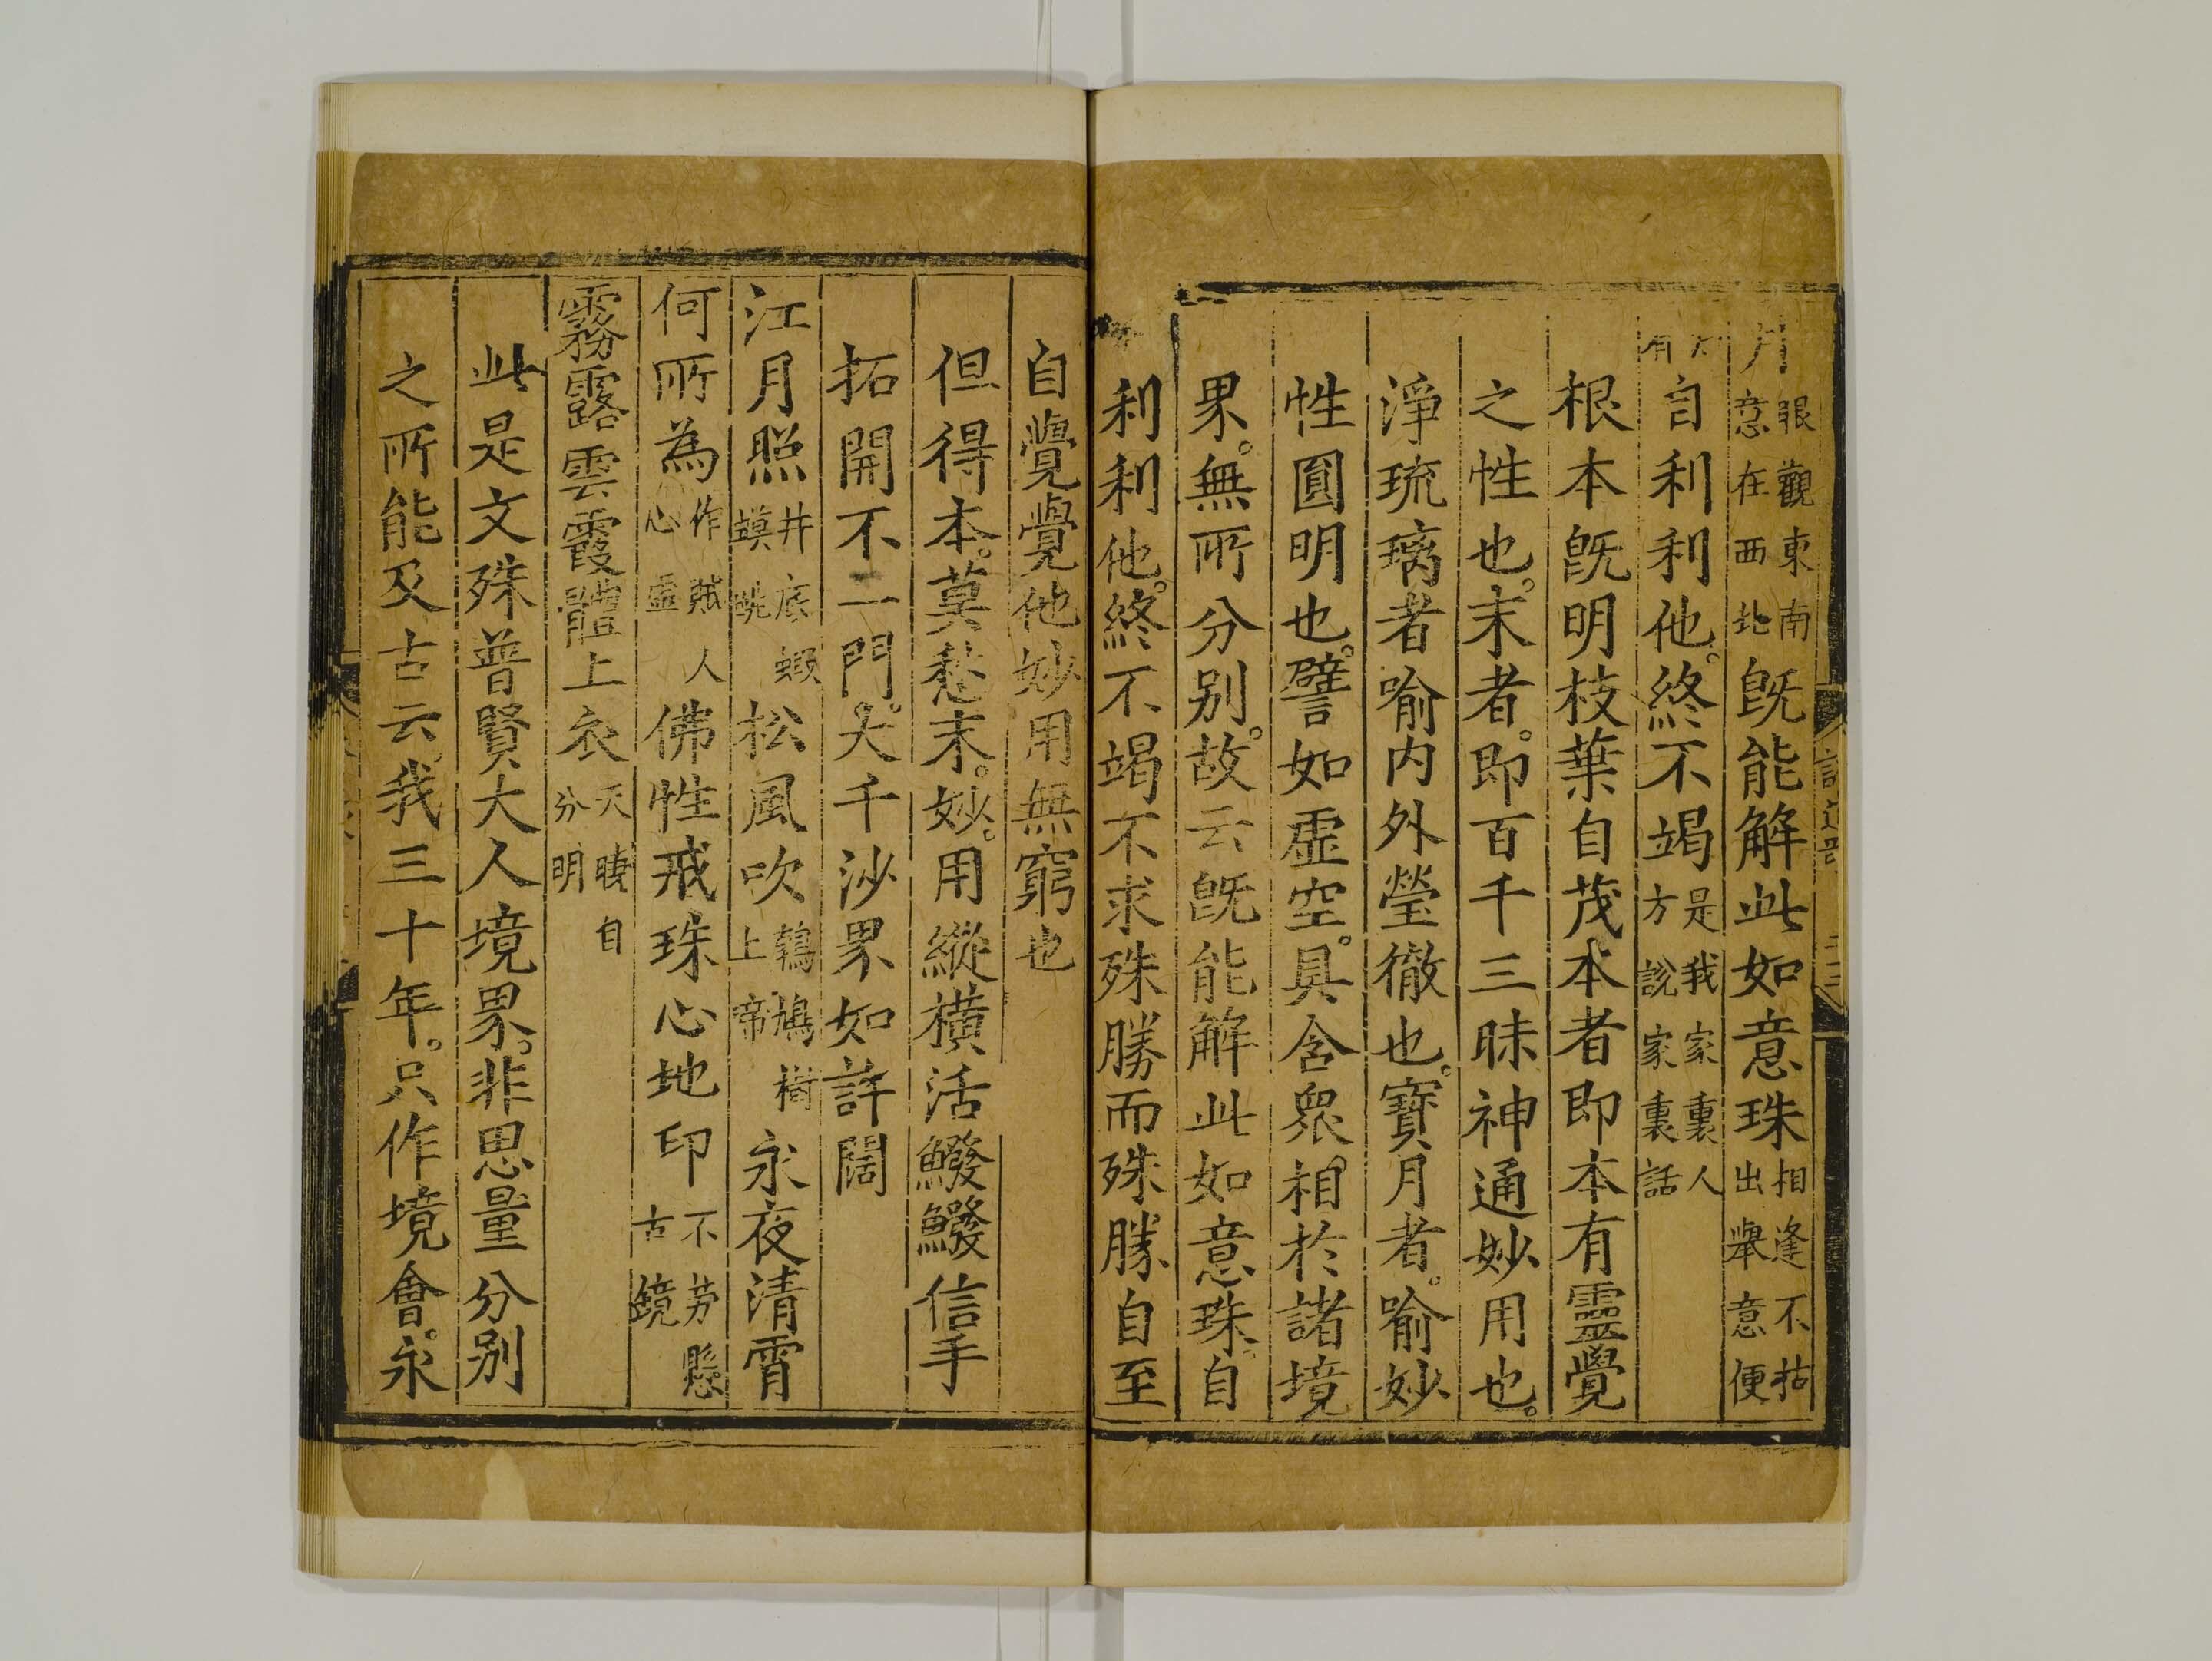 月眼觀東南意在西北既能解此如意珠相逢不拈出舉意便
有自利利他。終不竭是我家裏人方說家裏話
根本既明枝葉自茂本者即本有靈覺
之性也。末者。即百千三昧神通妙用也。
淨琉璃者喻內外瑩徹也。寶月者。喻妙
性圓明也。譬如虛空。具含眾相。於諸境
界。無所分別。故云既能解此如意珠。自
利利他。終不竭不求殊勝而殊勝自至
自覺覺他妙用無窮也
但得本。莫愁末。妙。用縱橫活鱍鱍信手
拓開不二門。大千沙界如許闊
江月照井底蝦蟆跳松風吹鵓鳩樹上啼永夜清霄
何所為作賊人心虛佛性戒珠心地印不勞懸古鏡
霧露雲霞體上衣天曉自分明
此是文殊普賢大人境界。非思量分別
之所能及古云。我三十年。只作境會。永